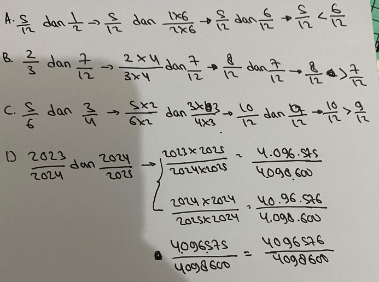 A. 5/12 dan 1/2 → 5/12 dan 1x6/2x6 → 5/12 dan 6/12 → 5/12 < 6/12
B. 2/3 dan 7/12 → 2x4/3x4 dan 7/12 → 8/12 dan 7/12 → 8/12 > 7/12
C. 5/6 dan 3/4 → 5x2/6x2 dan 3x3/4x3 → 10/12 dan 9/12 → 10/12 > 9/12
D) 2023/2024 dan 2024/2025 → 2023x2025/2024x2025 = 4.096.575/4098.600
2024x2024/2025x2024 = 40.96.576/4.098.600
4096575/4098600 = 4096576/4098600